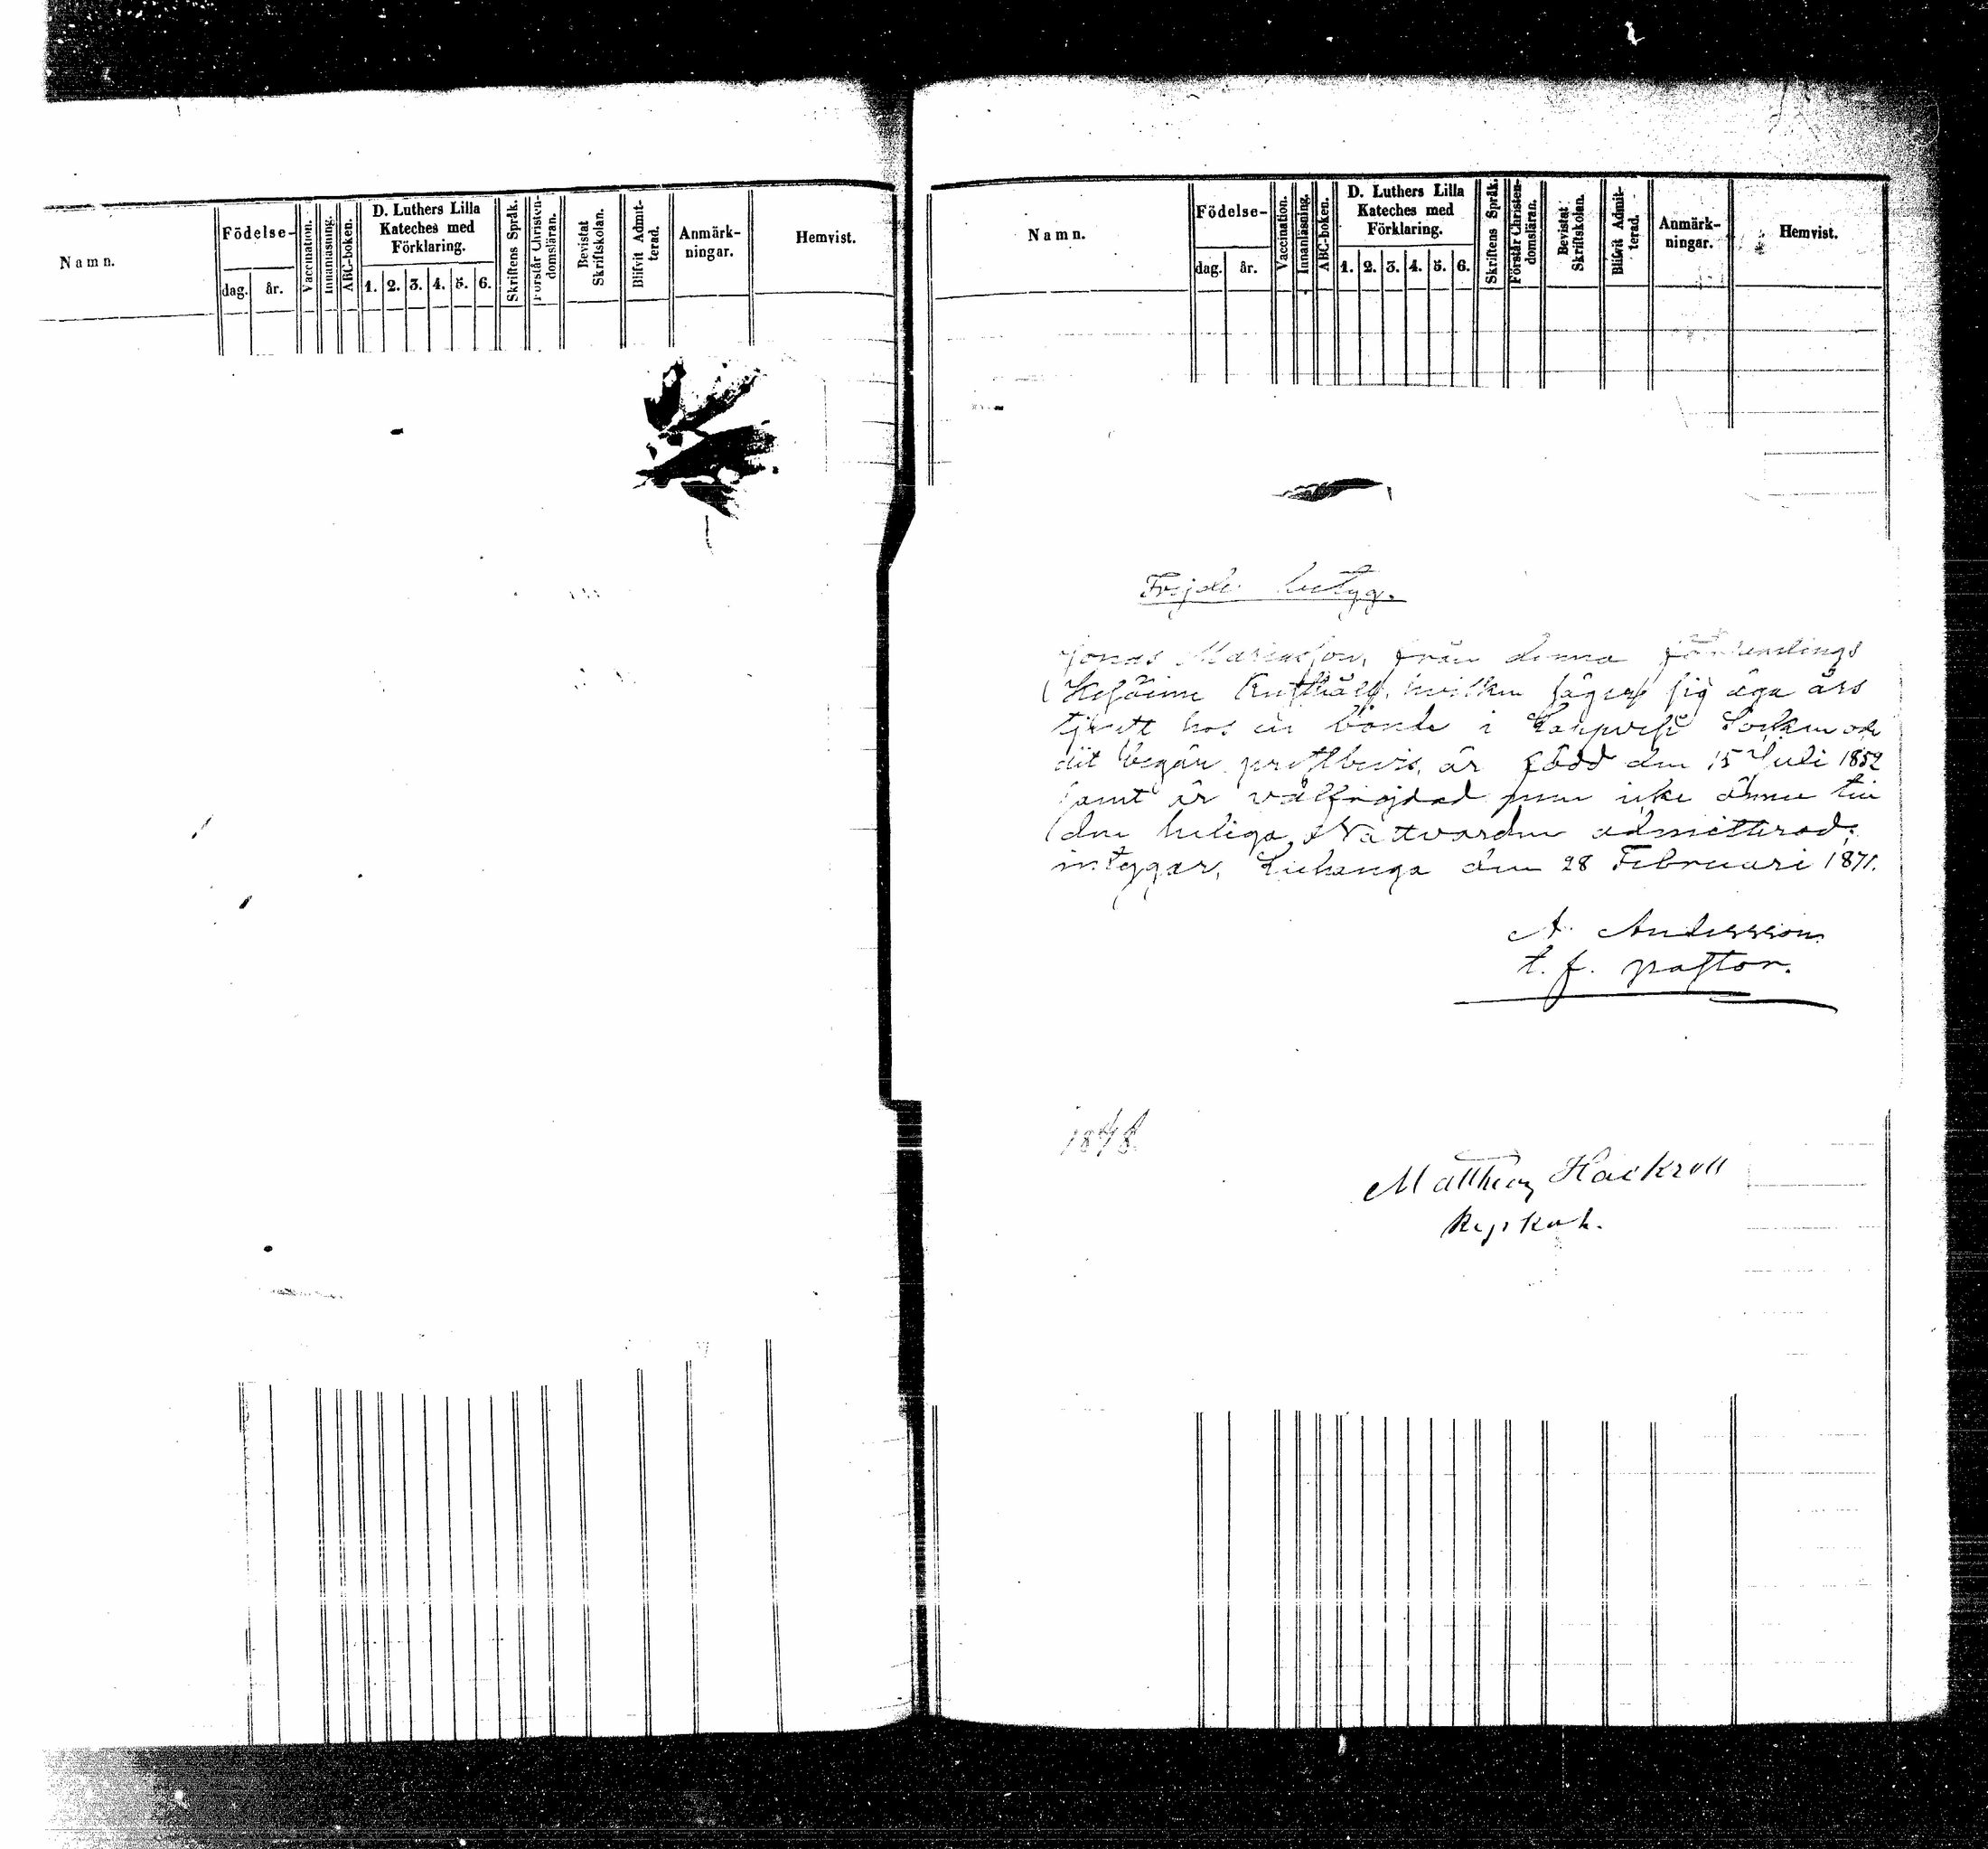 Namn.
Födelse-
dag. år.
Vaccination.
Innanläsning.
ABC-boken.
D. Luthers Lilla
Kateches med
Förklaring.
1. 2. 3. 4. 5. 6.
Skriftens Språk.
Förstår Christen-
domsläran.
Bevistat
Skriftskolan.
Blifvit Admit-
terad.
Anmärk-
ningar.
Hemvist.
Namn.
Födelse-
dag. år.
Vaccination.
Innanläsning.
ABC-boken.
D. Luthers Lilla
Kateches med
Förklaring.
1. 2. 3. 4. 5. 6.
Skriftens Språk.
Förstår Christen-
domsläran.
Bevistat
Skriftskolan.
Blifvit Admit-
terad.
Anmärk-
ningar.
Hemvist.
Frejde betyg.
Jonas från denna församlings
hvilken säger sig äga års
tjenst hos en bonde i Socken och
dit begär prestbevis, är född den 15 Juli 1852
samt är välfrejdad men icke ännu till
den heliga Nattvarden admitterad;
intygar, den 28 Februari 1871.
A. Andersson
t. f. pastor.